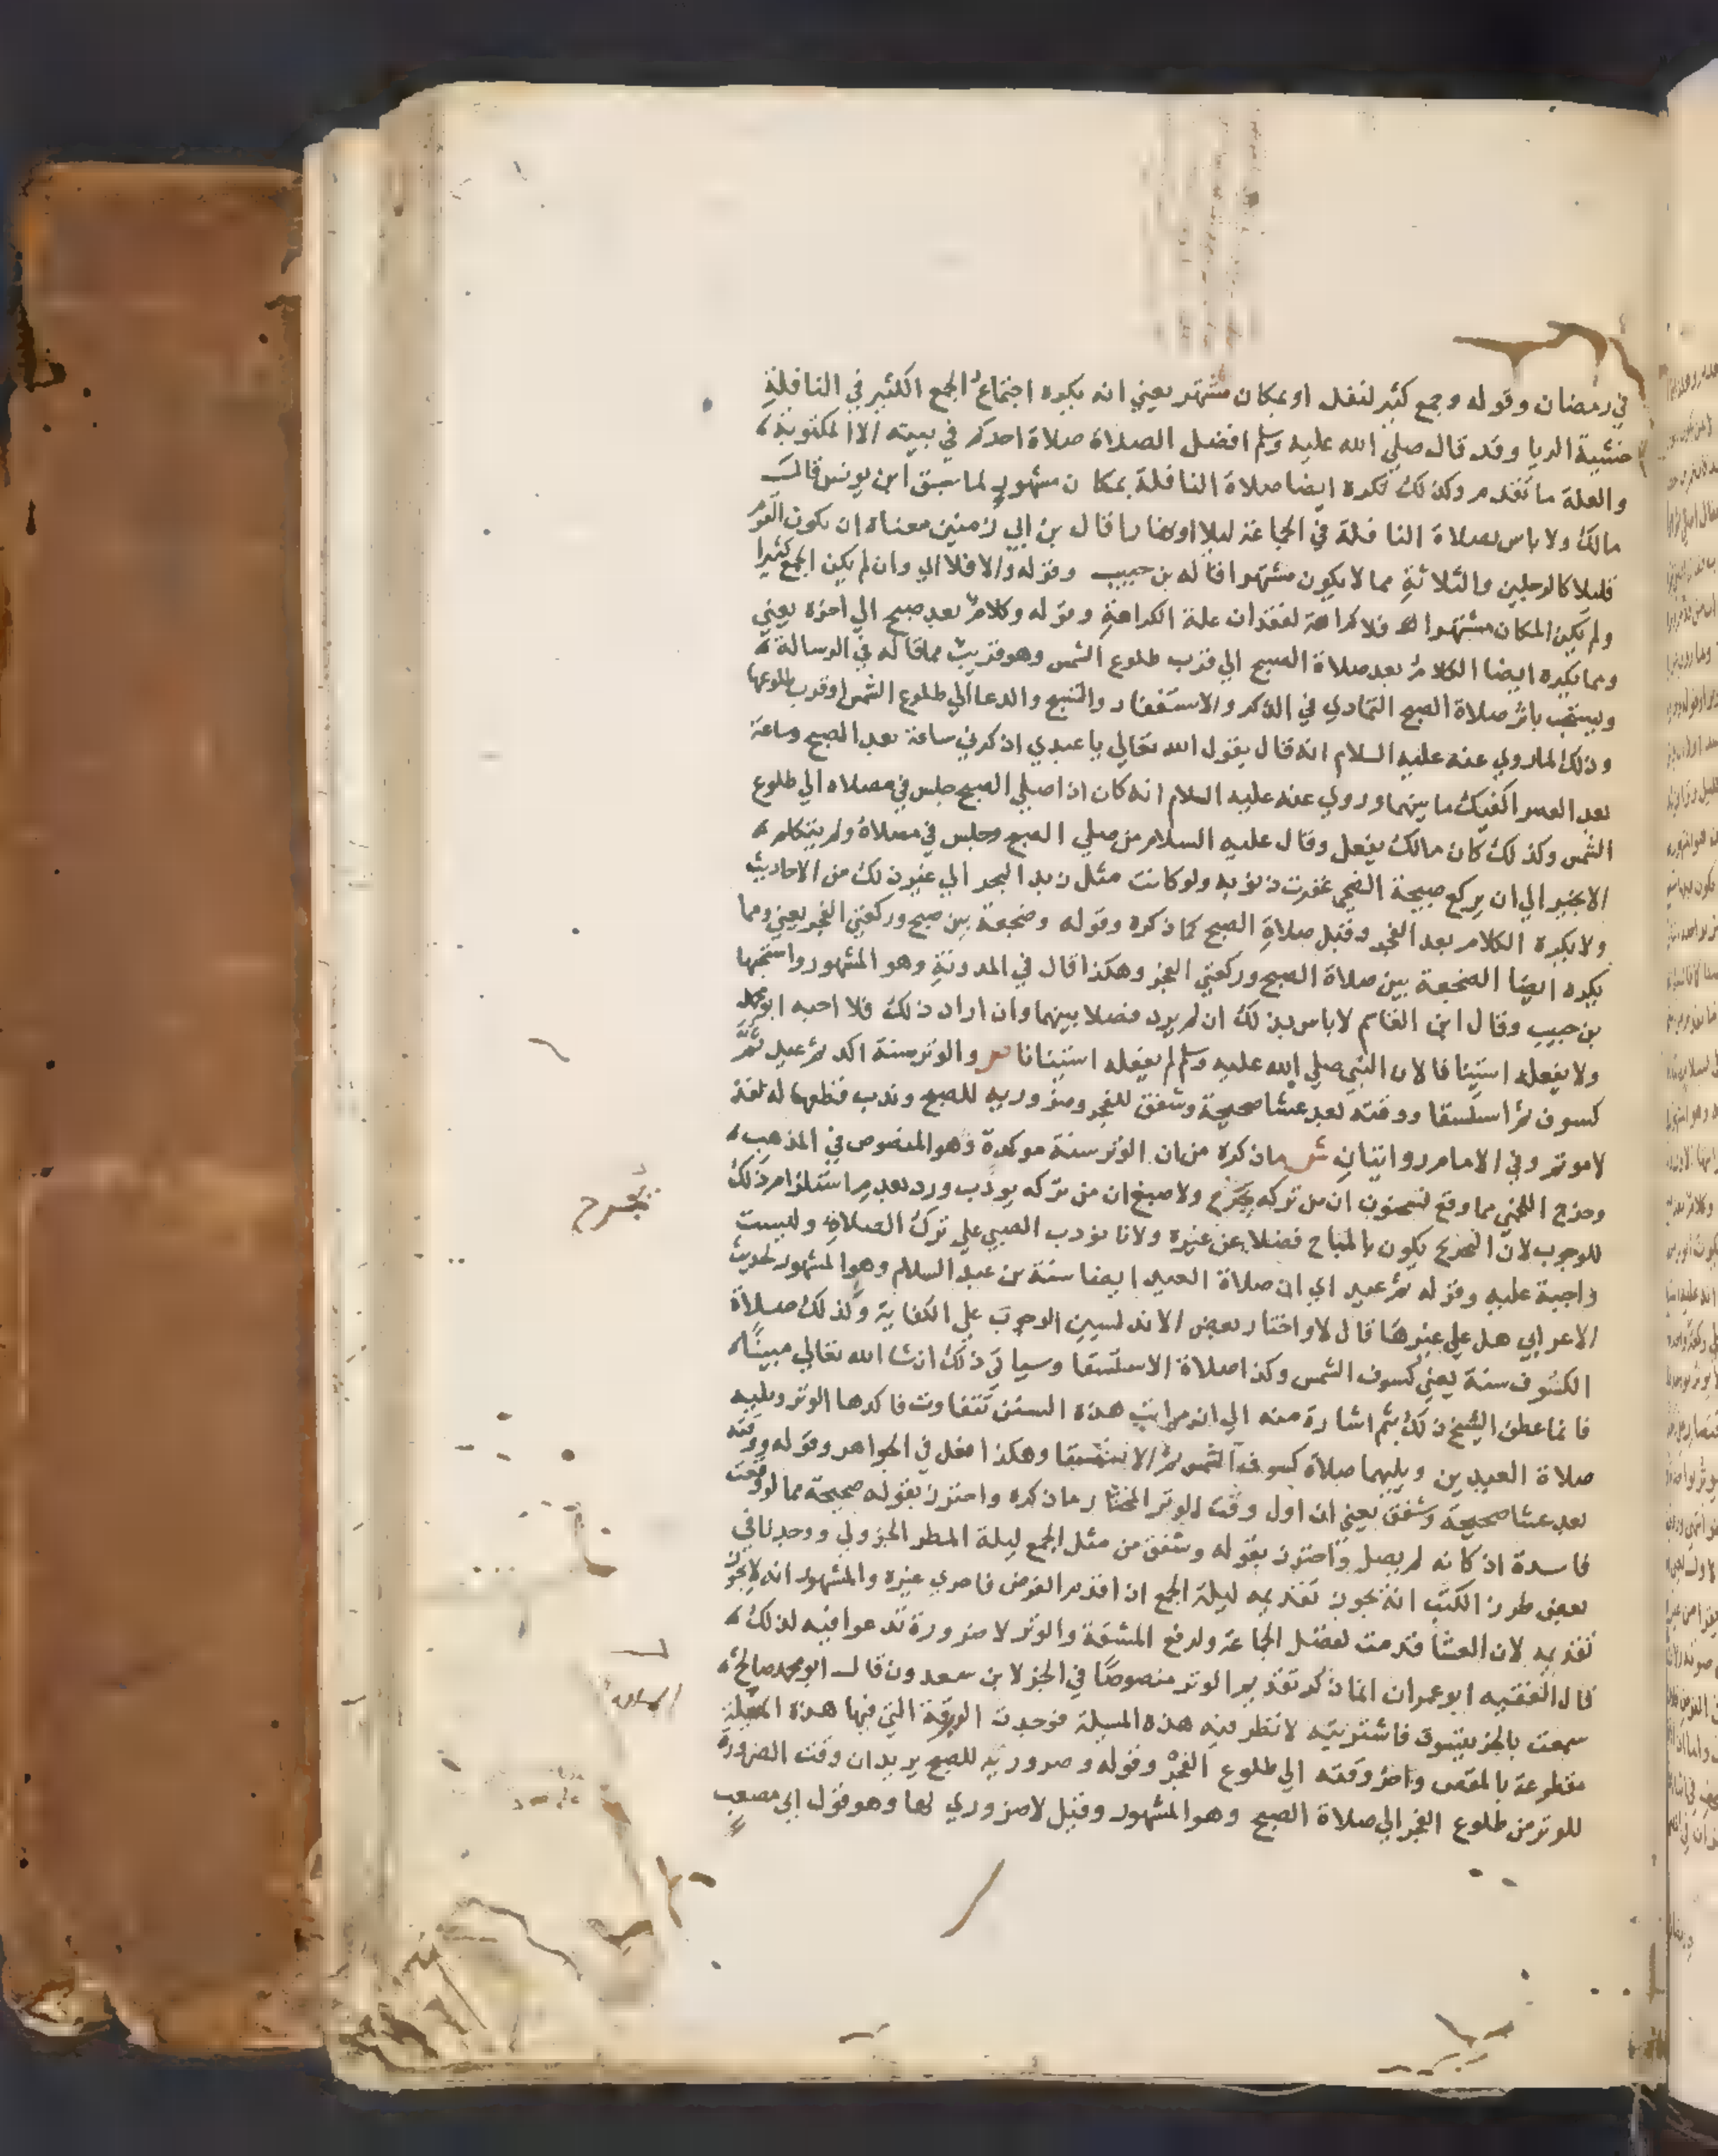 في رمضان وقوله وجمع كثير لنفل او بمكان مشتهر يعني انه يكره اجتماع الجمع الكثير في النافلة
خشية الريا وقد قال صلي الله عليه وسلم افضل الصلاة صلاة احدكم في بيته الا المكتوبة
والعلة ما تقدم وكذلك تكره ايضا صلاة النافلة بمكان مشهور لما سبق ابن يونس قال
مالك ولا باس بصلاة النافلة في الجماعة ليلا او نهارا قال بن ابي زمنين معناه ان يكون القوم
قليلا كالرجلين والثلاثة مما لا يكون مشتهرا قاله بن حبيب وقوله والا فلا اي وان لم يكن الجمع كثيرا
ولم يكن المكان مشتهرا فلا كراهة لفقدان علة الكراهة وقوله وكلام بعد صبح الي اخره يعني
ومما يكره ايضا الكلام بعد صلاة الصبح الي قرب طلوع الشمس وهو قريب مما قاله في الرسالة
ويستحب باثر صلاة الصبح التمادي في الذكر والاستغفار والتسبيح والدعا الي طلوع الشمس او قرب طلوعها
وذلك لما روي عنه عليه السلام انه قال يقول الله تعالي يا عبدي اذكرني ساعة بعد الصبح وساعة
بعد العصر اكفيك ما بينهما وروي عنه عليه السلام انه كان اذا صلي الصبح جلس في مصلاه الي طلوع
الشمس وكذلك كان مالك يفعل وقال عليه السلام من صلي الصبح وجلس في مصلاه ولم يتكلم
الا بخير الي ان يركع صبيحة الضحي غفرت ذنوبه ولو كانت مثل زبد البحر الي غير ذلك من الاحاديث
ولا يكره الكلام بعد الفجر وقبل صلاة الصبح كما ذكره وقوله وضجعة بين صبح وركعتي الفجر يعني ومما
يكره ايضا الضجعة بين صلاة الصبح وركعتي الفجر وهكذا قال في المدونة وهو المشهور واستحبها
بن حبيب وقال ابن القاسم لا باس بذلك ان لم يرد فضلا بينهما وان اراد ذلك فلا احبه ابو محمد
ولا يفعله استينانا لان النبي صلي الله عليه وسلم لم يفعله استينانا والوتر سنة اكد ثم عيد ثم
كسوف ثم استسقا ووقته بعد عشا صحيحة وشفق للفجر وضروريه للصبح وندب قطعها له لفذ
لا موتم وفي الامام روايتان ش ما ذكره من ان الوتر سنة موكدة وهو المنصوص في المذهب
وخرج اللخمي مما وقع لسحنون ان من تركه يجرح ولاصبغ ان من تركه يودب ورد بعدم استلزام ذلك
للوجوب لان التجريح يكون بالمباح فضلا عن غيره ولانا نودب الصبي علي ترك الصلاة وليست
واجبة عليه وقوله ثم عيد اي ان صلاة العيد ايضا سنة بن عبد السلام وهو المشهور لحديث
الاعرابي هل علي غيرها قال لا واختار بعض الاندلسيين الوجوب علي الكفاية وكذلك صلاة
الكسوف سنة يعني كسوف الشمس وكذا صلاة الاستسقا وسياتي ذلك ان شا الله تعالي مبينا
فانما عطف الشيخ ذلك بثم اشارة منه الي ان مراتب هذه السنن تتفاوت فاكدها الوتر ويليه
صلاة العيدين ويليهما صلاة كسوف الشمس ثم الاستسقا وهكذا فعل في الجواهر وقوله ووقته
بعد عشا صحيحة وشفق يعني ان اول وقت الوتر المختار ما ذكره واحترز بقوله صحيحة مما لو وقعت
فاسدة اذ كانه لم يصل واحترز بقوله وشفق من مثل الجمع ليلة المطر الجزولي ووجدنا في
بعض طرز الكتب انه يجوز تقديمه ليلة الجمع اذا قدم الفرض فاحري غيره والمشهور انه لا يجوز
تقديمه لان العشا قدمت لفضل الجماعة ولرفع المشقة والوتر لا ضرورة تدعوا فيه لذلك
قال الفقيه ابو عمران انما ذكر تقديم الوتر منصوصا في الجزء لابن سعدون قال ابو محمد صالح
سمعت بالجزء فاشتريته لانظر فيه هذه المسيلة فوجدت الورقة التي فيها هذه المسيلة
مقطوعة بالمقص واخر وقته الي طلوع الفجر وقوله وضروريه للصبح يريد ان وقت الضرورة
للوتر من طلوع الفجر الي صلاة الصبح وهو المشهور وقيل لا ضروري لها وهو قول ابي مصعب